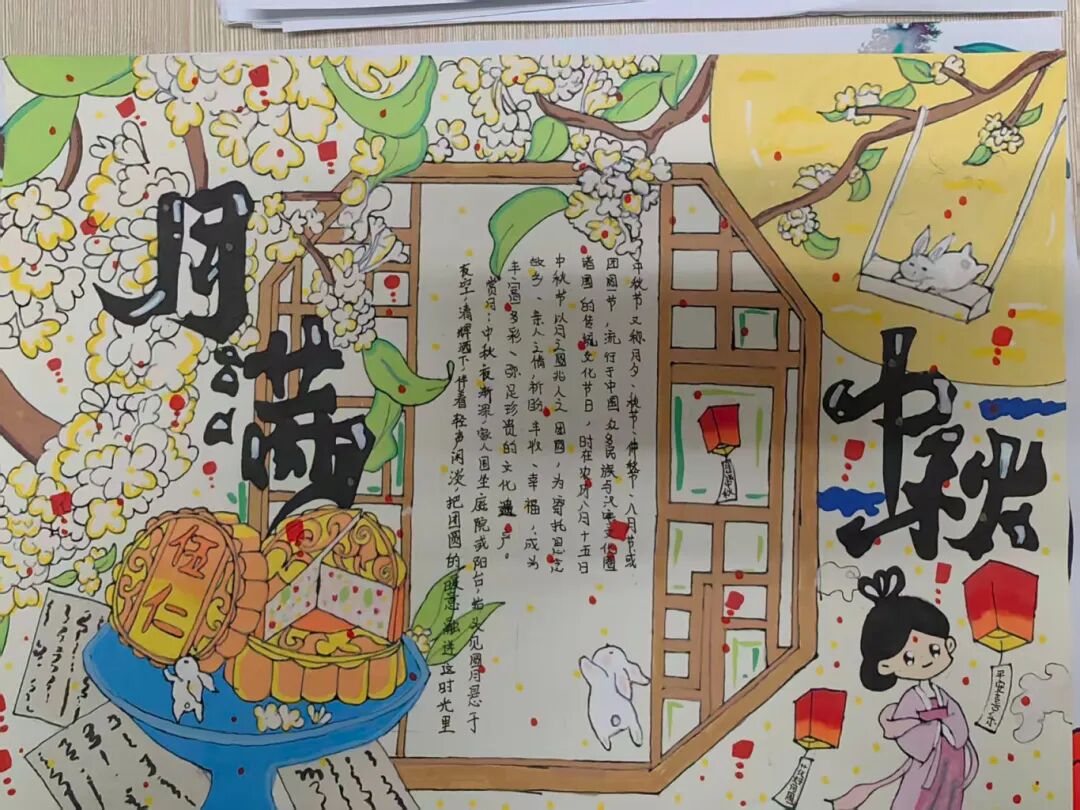 月满
中秋
中秋节又称月夕、秋节、仲秋节、八月节或
团圆节,流行于中国众多民族与汉字文化圈
诸国的传统文化节日,时在农历八月十五日
中秋节以月之圆兆人之团圆,为寄托思念
故乡、亲人之情,祈盼丰收、幸福,成为
丰富多彩、弥足珍贵的文化遗产。
赏月:中秋夜渐深,家人围坐庭院或阳台,抬头见圆月悬于
夜空,清辉洒下,伴着轻声闲谈,把团圆的暖意融进这时光里
伍仁
平安喜乐
花好月圆